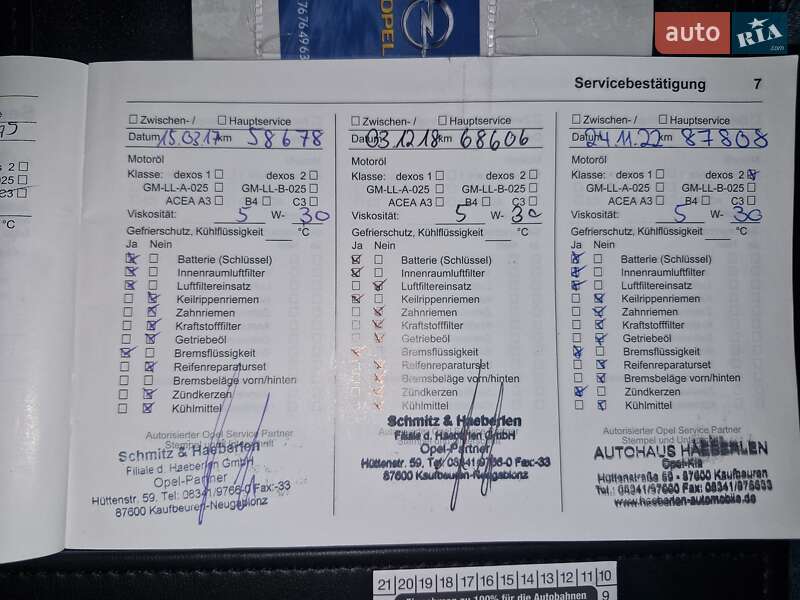 7676496
OPEL
auto RIA .com
Servicebestätigung 7
Zwischen- / Hauptservice
Datum 15.03.17 km 58678
Motoröl
Klasse: dexos 1 dexos 2
GM-LL-A-025 GM-LL-B-025
ACEA A3 B4 C3
Viskosität: 5 W- 30
Gefrierschutz, Kühlflüssigkeit °C
Ja Nein
Batterie (Schlüssel)
Innenraumluftfilter
Luftfiltereinsatz
Keilrippenriemen
Zahnriemen
Kraftstofffilter
Getriebeöl
Bremsflüssigkeit
Reifenreparaturset
Bremsbeläge vorn/hinten
Zündkerzen
Kühlmittel
Autorisierter Opel Service Partner
Stempel und Unterschrift
Schmitz & Haeberlen
Filiale d. Haeberlen GmbH
Opel-Partner
Hüttenstr. 59, Tel: 08341/9766-0 Fax:-33
87600 Kaufbeuren-Neugablonz
Zwischen- / Hauptservice
Datum 03.12.18 km 68606
Motoröl
Klasse: dexos 1 dexos 2
GM-LL-A-025 GM-LL-B-025
ACEA A3 B4 C3
Viskosität: 5 W- 30
Gefrierschutz, Kühlflüssigkeit °C
Ja Nein
Batterie (Schlüssel)
Innenraumluftfilter
Luftfiltereinsatz
Keilrippenriemen
Zahnriemen
Kraftstofffilter
Getriebeöl
Bremsflüssigkeit
Reifenreparaturset
Bremsbeläge vorn/hinten
Zündkerzen
Kühlmittel
Schmitz & Haeberlen
Filiale d. Haeberlen GmbH
Opel-Partner
Hüttenstr. 59, Tel. 08341/9766-0 Fax:-33
87600 Kaufbeuren-Neugablonz
Zwischen- / Hauptservice
Datum 24.11.22 km 87808
Motoröl
Klasse: dexos 1 dexos 2
GM-LL-A-025 GM-LL-B-025
ACEA A3 B4 C3
Viskosität: 5 W- 30
Gefrierschutz, Kühlflüssigkeit °C
Ja Nein
Batterie (Schlüssel)
Innenraumluftfilter
Luftfiltereinsatz
Keilrippenriemen
Zahnriemen
Kraftstofffilter
Getriebeöl
Bremsflüssigkeit
Reifenreparaturset
Bremsbeläge vorn/hinten
Zündkerzen
Kühlmittel
Autorisierter Opel Service Partner
Stempel und
AUTOHAUS HAEBERLEN
Opel-Kia
Hüttenstraße 59 - 87600 Kaufbeuren
Tel.: 08341/97660 Fax: 08341/976633
www.haeberlen-automobile.de
21 20 19 18 17 16 15 14 13 12 11 10
9
zu 100% für die Autobahnen